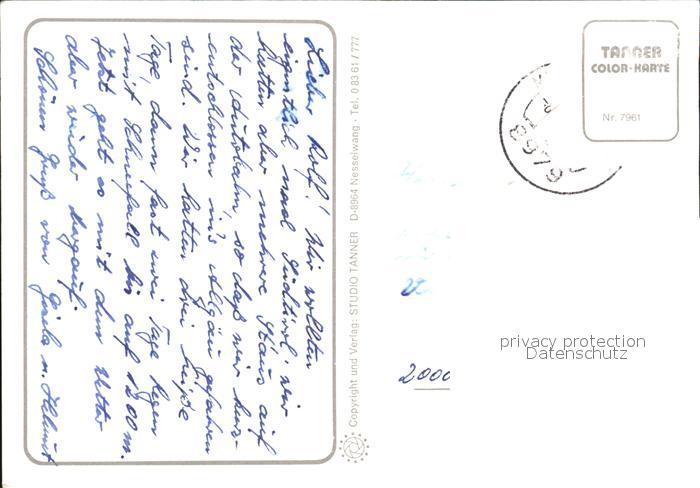 Lieber Rolf! Wir wollten
eigentlich nach Südtirol, wir
hatten aber mehrere Staus auf
der Autobahn, so daß wir kurz-
entschlossen ins Allgäu gefahren
sind. Wir hatten drei heiße
Tage, dann fast zwei Tage Regen
mit Schneefall bis auf 1200 m.
Jetzt geht es mit dem Wetter
aber wieder bergauf.
Schönen Gruß von Gisela u. Helmut
Copyright und Verlag: STUDIO TANNER · D-8964 Nesselwang · Tel. 0 83 61 / 777
TANNER
COLOR-KARTE
Nr. 7961
2000
privacy protection
Datenschutz